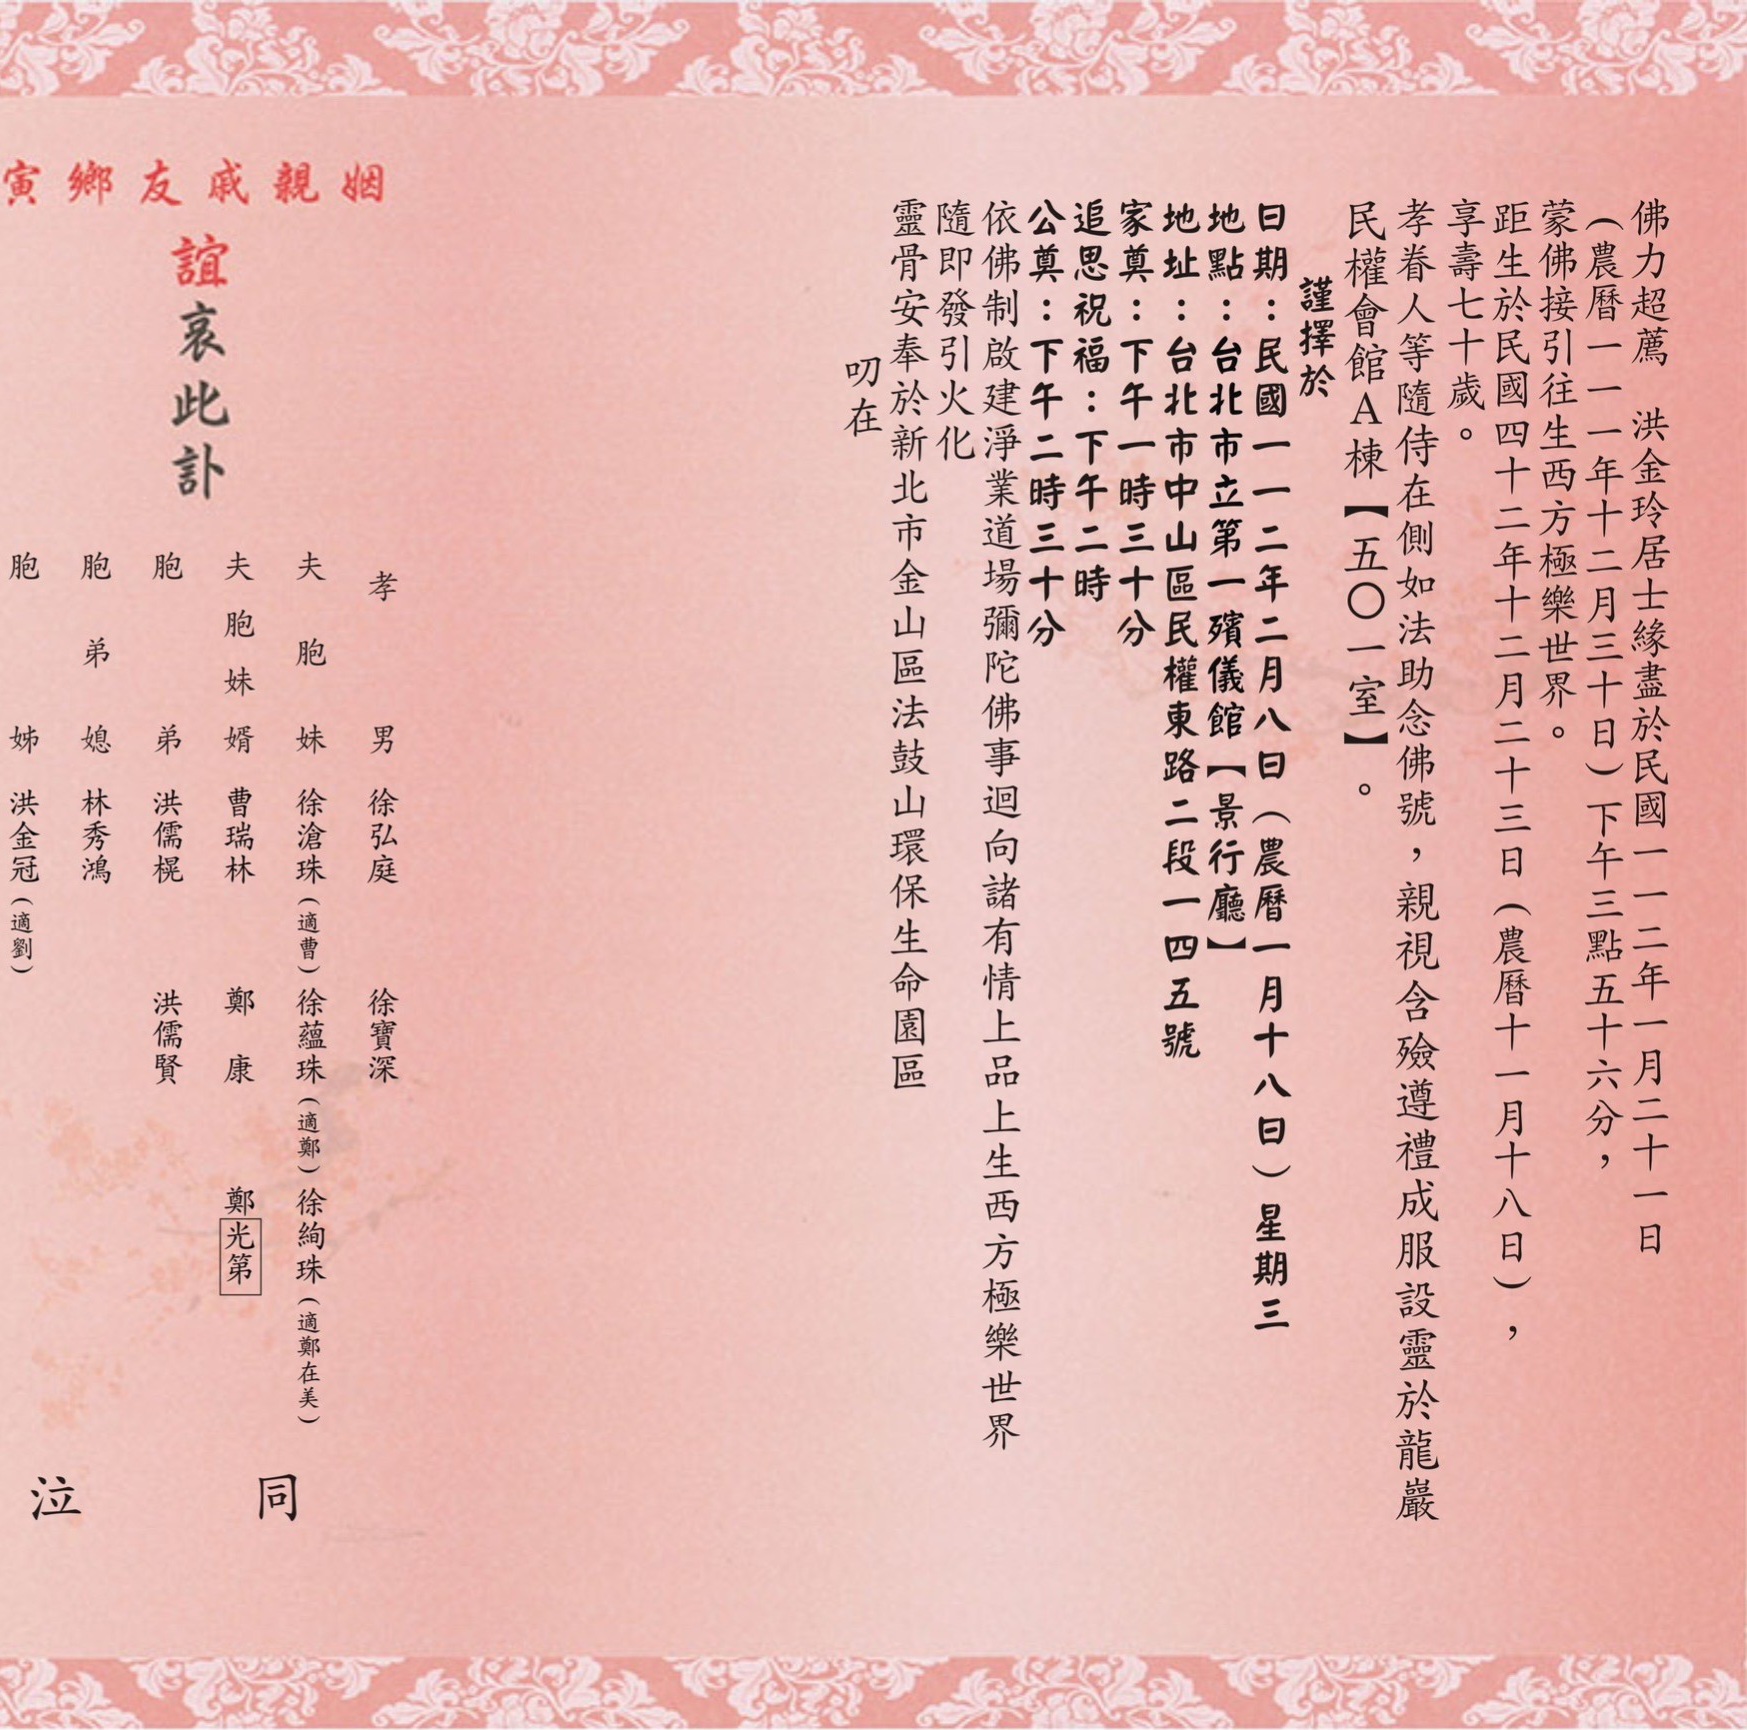 佛力超薦　洪金玲居士緣盡於民國一一二年一月二十一日
（農曆一一一年十二月三十日）下午三點五十六分，
蒙佛接引往生西方極樂世界。
距生於民國四十二年十二月二十三日（農曆十一月十八日），
享壽七十歲。
孝眷人等隨侍在側如法助念佛號，親視含殮遵禮成服設靈於龍巖
民權會館Ａ棟【五〇一室】。
謹擇於
日期：民國一一二年二月八日（農曆一月十八日）星期三
地點：台北市立第一殯儀館【景行廳】
地址：台北市中山區民權東路二段一四五號
家奠：下午一時三十分
追思祝福：下午二時
公奠：下午二時三十分
依佛制啟建淨業道場彌陀佛事迴向諸有情上品上生西方極樂世界
隨即發引火化
靈骨安奉於新北市金山區法鼓山環保生命園區
叨在
姻親戚友鄉寅
誼哀此訃
孝男　徐弘庭　徐寶深
夫胞妹　徐滄珠（適曹）　徐蘊珠（適鄭）　徐絢珠（適鄭在美）
夫胞妹婿　曹瑞林　鄭康　鄭光第
胞弟　洪儒榥　洪儒賢
胞弟媳　林秀鴻
胞姊　洪金冠（適劉）
同泣